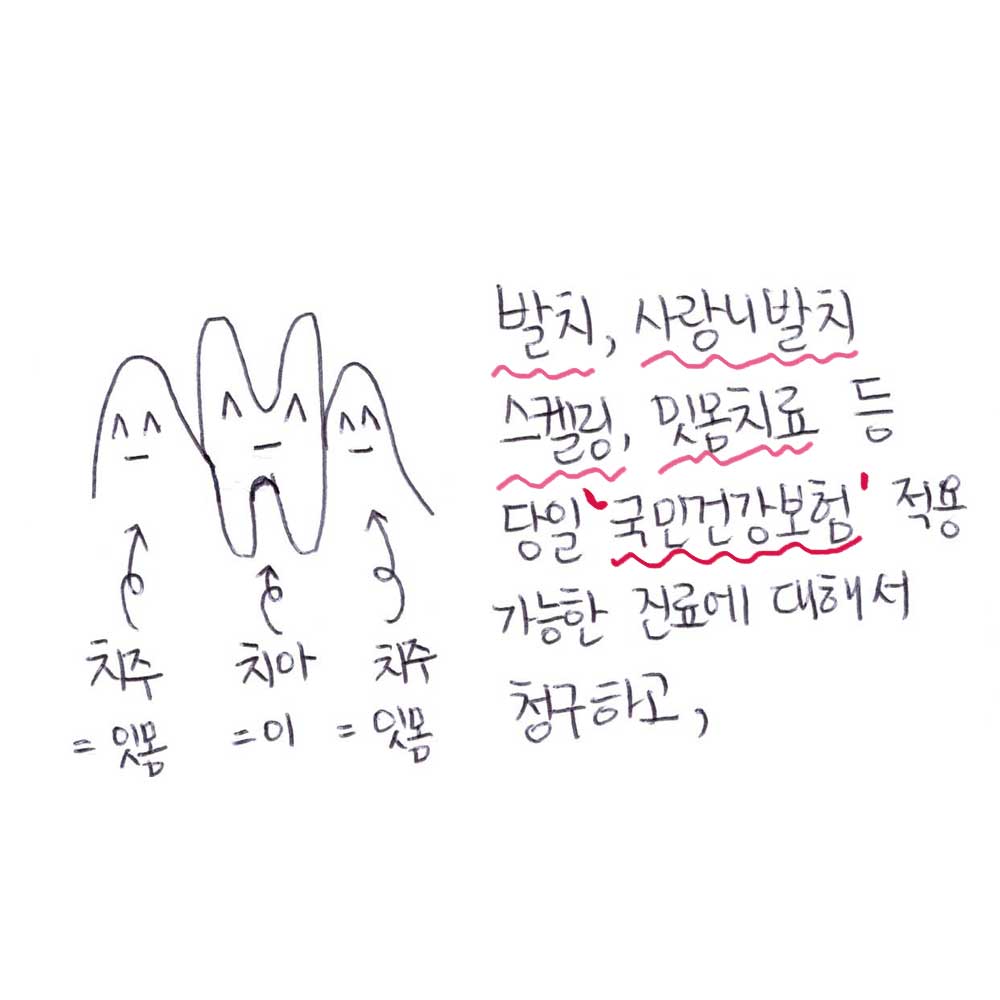 발치, 사랑니발치
스켈링, 잇몸치료 등
당일 '국민건강보험' 적용
가능한 진료에 대해서
청구하고,
치주 치아 치주
= 잇몸 = 이 = 잇몸